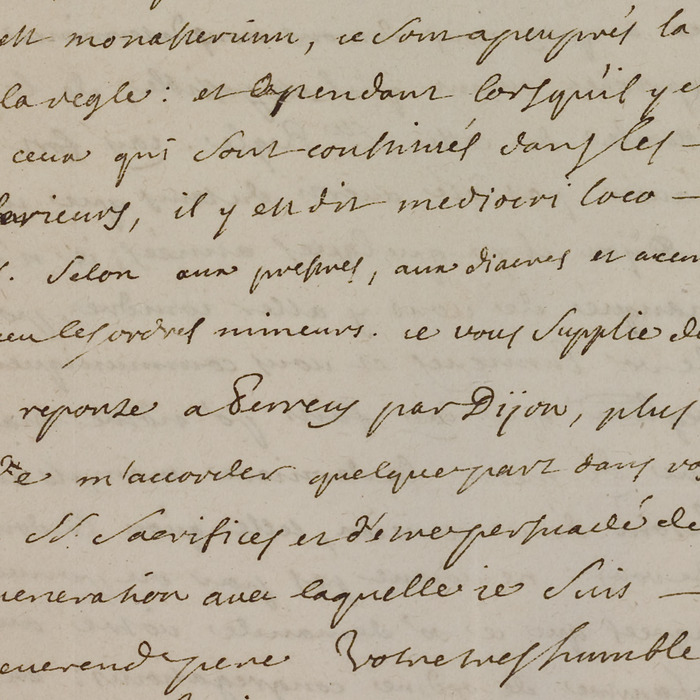 est monasterium, ce sont apeuprés la
la regle: et cependant lorsqu'il y e
ceux qui sont constitués dans les —
erieurs, il y est dit mediocri loco —
. selon aux prestres, aux diacres et aceu
eu les ordres mineurs. ie vous supplie de
reponse a Perrecy par Dijon, plus
m'accorder quelque part dans vo
SS. Sacrifices et d'etre persuadé de
veneration avec laquelle ie suis —
everend pere Votre tres humble